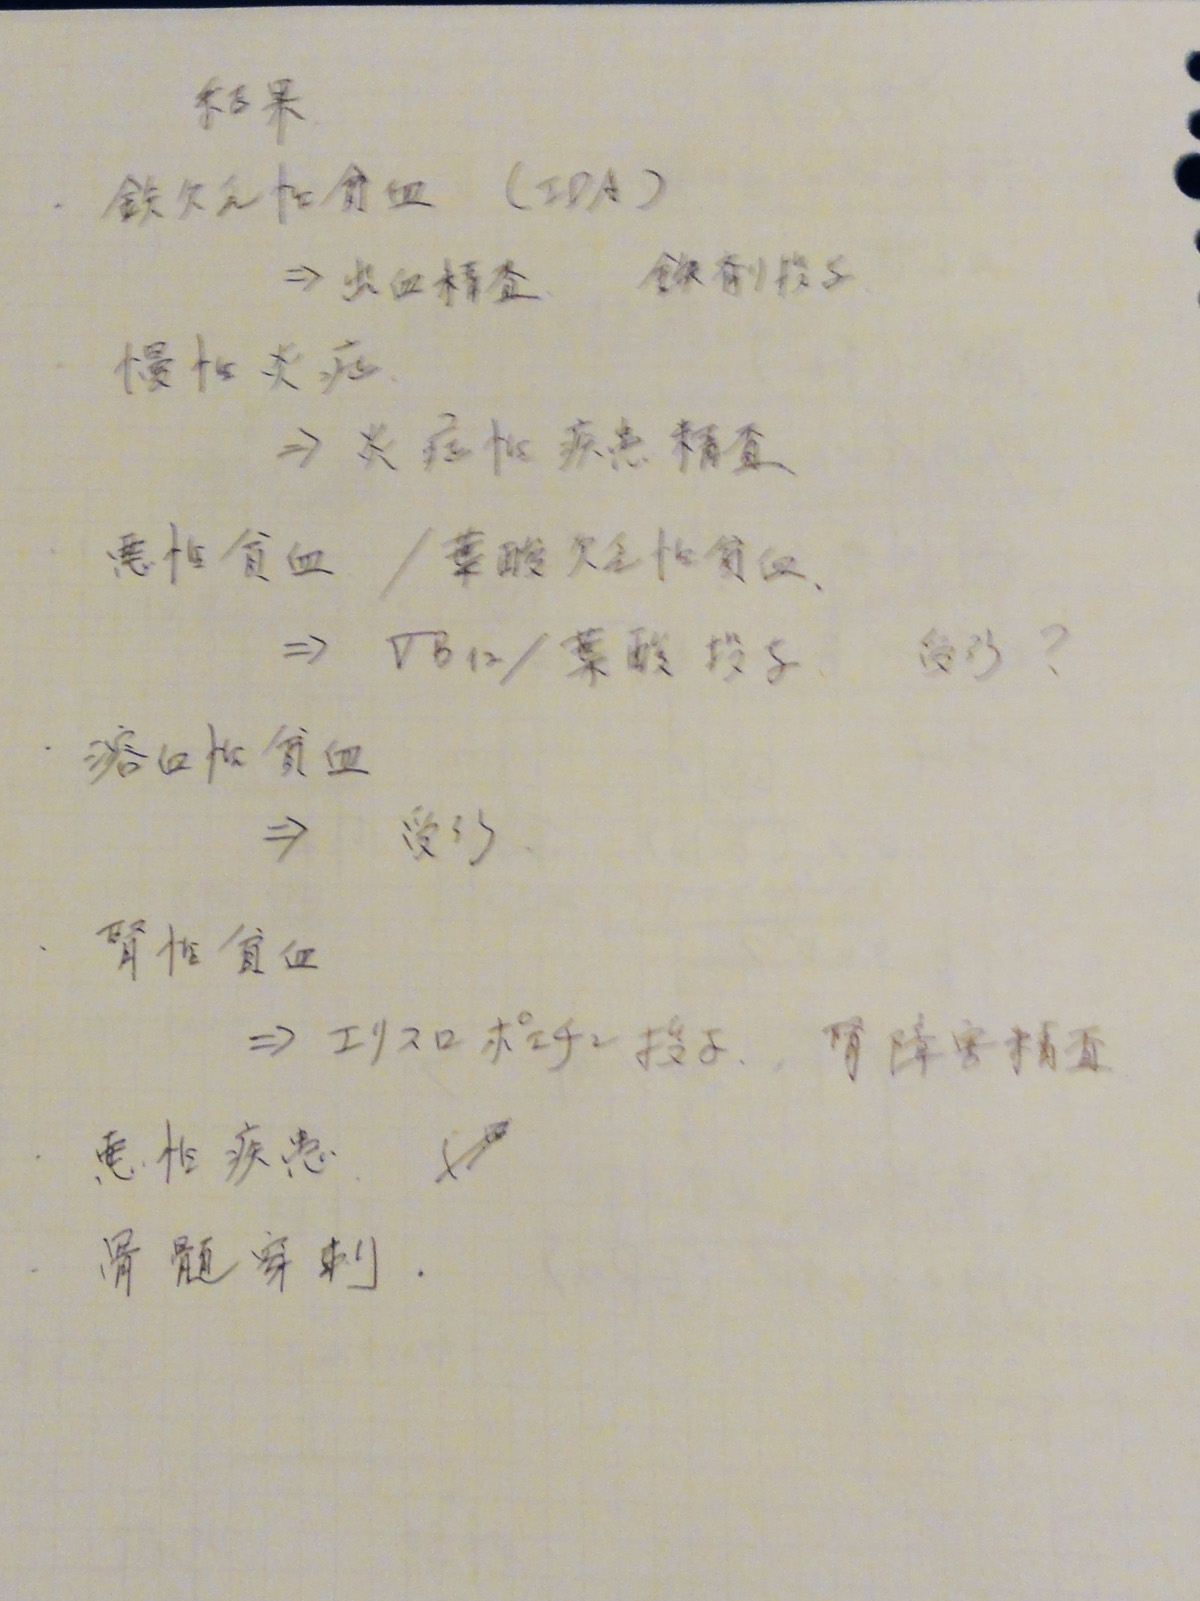 結果
・鉄欠乏性貧血 (IDA)
⇒ 出血精査 鉄剤投与
・慢性炎症
⇒ 炎症性疾患精査
・悪性貧血 / 葉酸欠乏性貧血
⇒ VB12/葉酸投与 ?
・溶血性貧血
⇒
・腎性貧血
⇒ エリスロポエチン投与. 腎障害精査
・悪性疾患
・骨髄穿刺.